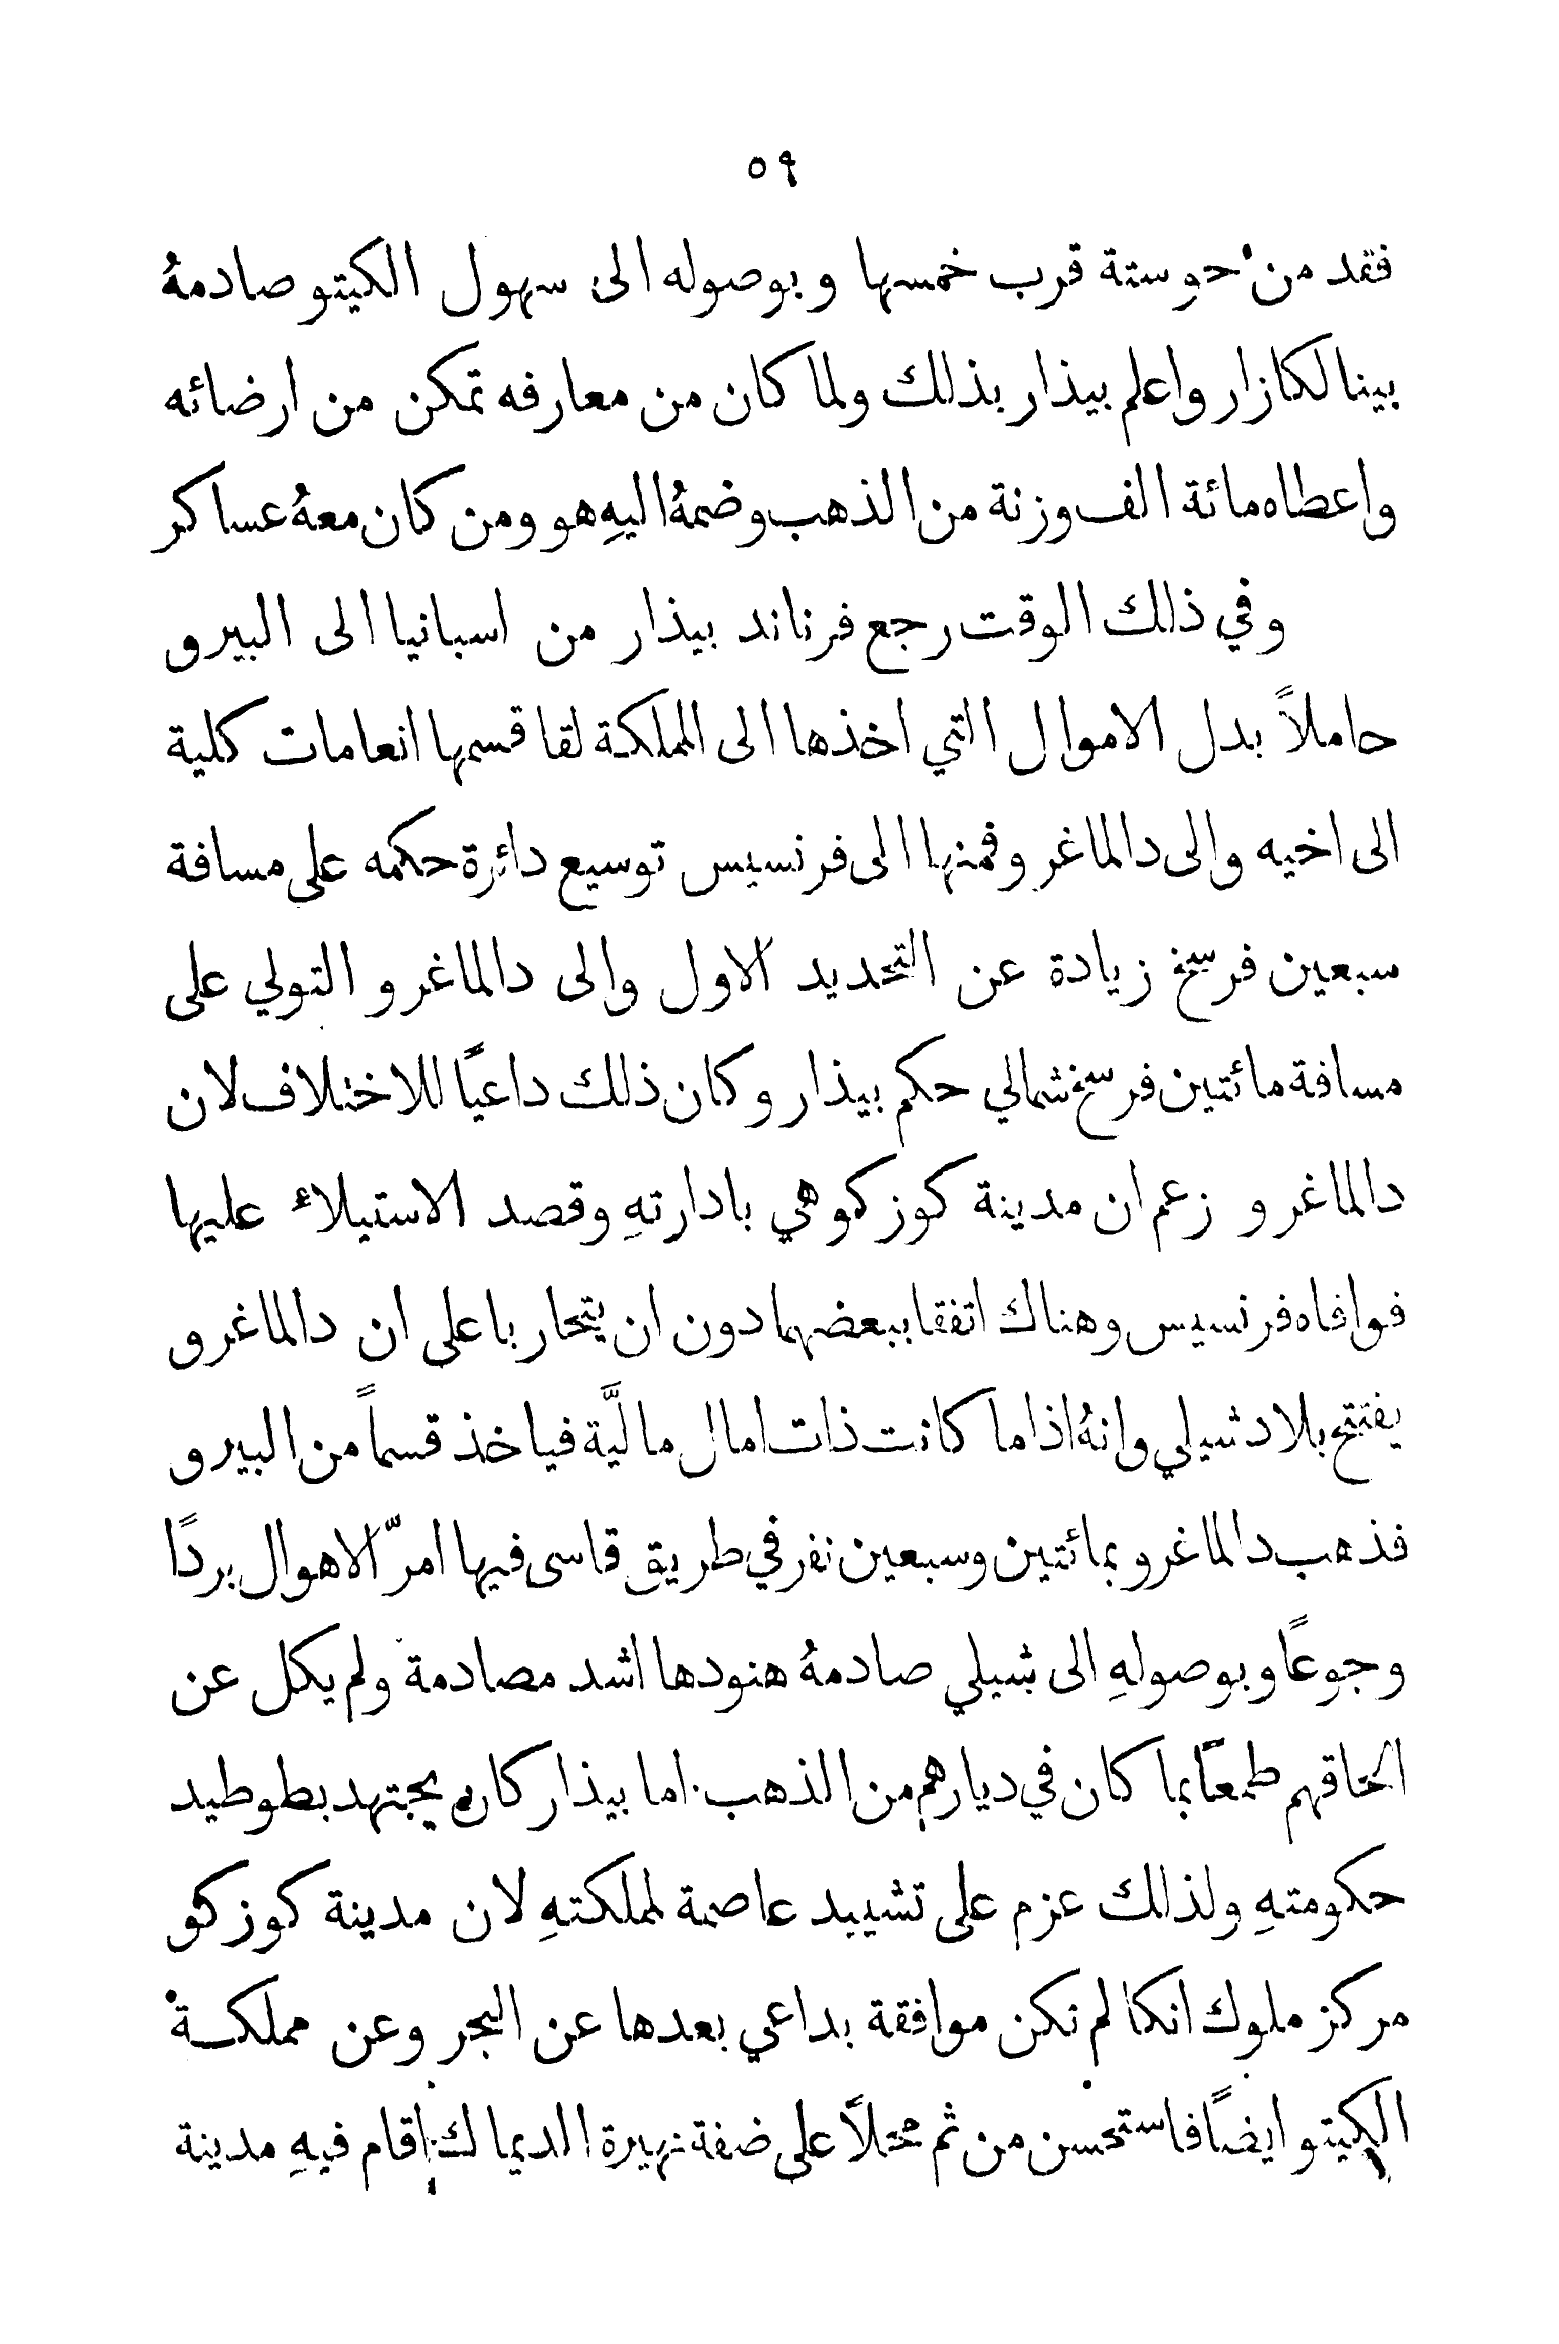 ٥٩
فقد من حوستة قرب خمسها وبوصوله الى سهول الكيتو صادمهُ
بينالكازار واعلم بيذار بذلك ولما كان من معارفه تمكن من ارضائه
واعطاه مائة الف وزنة من الذهب وضمهُ اليهِ هو ومن كان معهُ عساكر
وفي ذلك الوقت رجع فرناند بيذار من اسبانيا الى البيرو
حاملاً بدل الاموال التي اخذها الى المملكة لقا قسمها انعامات كلية
الى اخيه والى دالماغرو فمنها الى فرنسيس توسيع دائرة حكمه على مسافة
سبعين فرسخ زيادة عن التحديد الاول والى دالماغرو التولي على
مسافة مائتين فرسخ شمالي حكم بيذار وكان ذلك داعيًا للاختلاف لان
دالماغرو زعم ان مدينة كوزكو هي بادارتهِ وقصد الاستيلاء عليها
فوافاه فرنسيس وهناك اتفقا ببعضهما دون ان يتحاربا على ان دالماغرو
يفتتح بلاد شيلي وانهُ اذا ما كانت ذات امال ماليَّة فياخذ قسماً من البيرو
فذهب دالماغرو بمائتين وسبعين نفر في طريق قاسى فيها امرّ الاهوال بردًا
وجوعًا وبوصولهِ الى شيلي صادمهُ هنودها اشد مصادمة ولم يكل عن
الحاقهم طمعًا بما كان في ديارهم من الذهب. اما بيذار كان يجتهد بطوطيد
حكومتهِ ولذلك عزم على تشييد عاصمة لمملكتهِ لان مدينة كوزكو
مركز ملوك انكا لم تكن موافقة بداعي بعدها عن البحر وعن مملكة
الكيتو ايضًا فاستحسن من ثم محلاً على ضفة نهيرة الديمالك اقام فيهِ مدينة